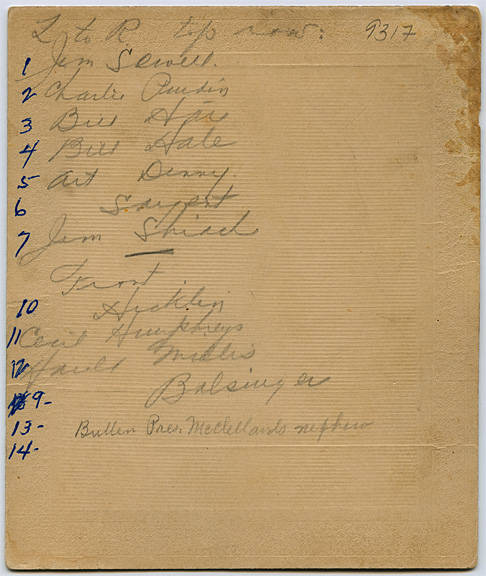 L to R top row: 9317
1 Jim Sewell.
2 Charlie
3 Bill
4 Bill Hale
5 Art Denny.
6 Sargent
7 Jim
Front
10 Hicklin
11 Cecil Humphreys
12 Harold
9- Balsinger
13- Bullen Pres. McClellands nephew
14-